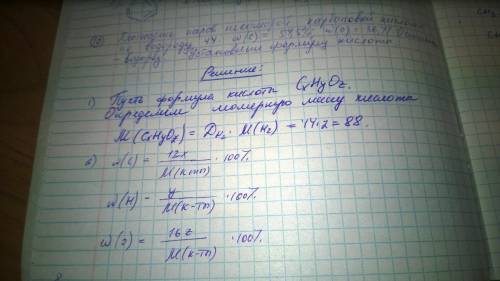 Плотность паров некоторой карбоновой кислоты
по водороду 44. ω(C) = 54,5%, ω(O) = 36,4%.
водород. Установите формулу кислоты
Решение:
1) Пусть формула кислоты CxHyOz.
Определим молярную массу кислота
M(CxHyOz) = DH₂ · M(H₂) = 14·2 = 88.
ω(C) = 12x / M(к-ты) · 100%.
ω(H) = y / M(к-ты) · 100%
ω(O) = 16z / M(к-ты) · 100%.